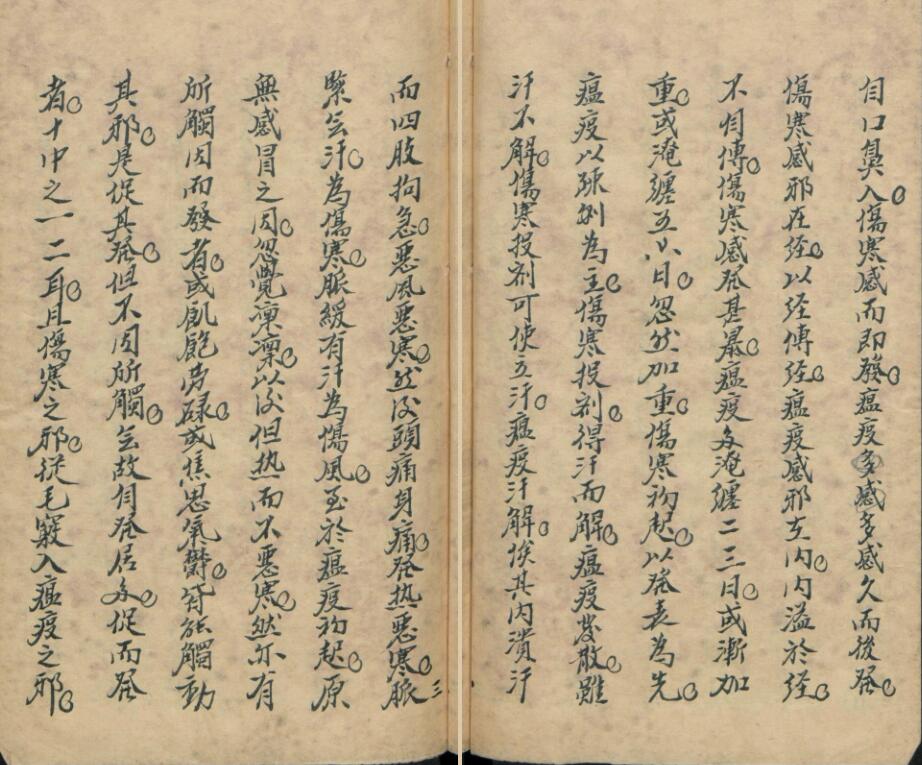 自口鼻入傷寒感而即發瘟疫多感多感久而後発
傷寒感邪在経以経傳経瘟疫感邪在内内溢於経
不自傳傷寒感発甚暴瘟疫多淹纏二三日或漸加
重或淹纏五六日忽然加重傷寒初起以発表為先
瘟疫以疎利為主傷寒投剂得汗而解瘟疫發散雖
汗不解傷寒投剂可使立汗瘟疫汗解俟其内潰汗
而四肢拘急惡風惡寒然後頭痛身痛発热惡寒脈
緊无汗為傷寒脈緩有汗為傷風至於瘟疫初起原
無感冒之因忽覺凜凜以後但热而不惡寒然亦有
所觸因而發者或飢飽勞碌或焦思氣鬱皆能觸動
其邪是促其発但不因所觸无故自発居多促而発
者十中之一二耳且傷寒之邪從毛竅入瘟疫之邪
三